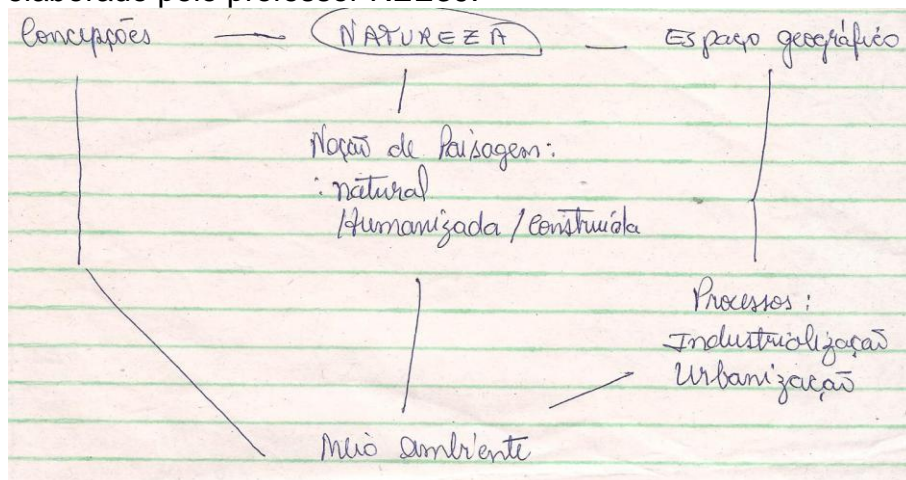 Concepções — NATUREZA — Espaço geográfico
Noção de Paisagem:
: natural
Humanizada / Construída
Processos:
Industrialização
Urbanização
Meio ambiente